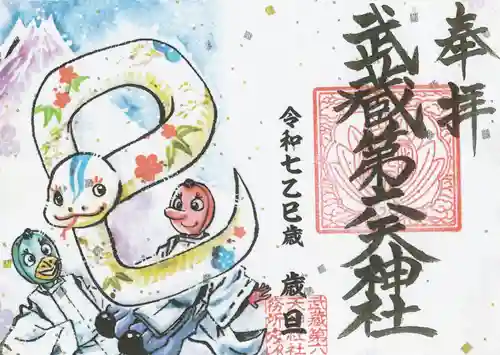 奉拝
武蔵第六天神社
令和七乙巳歳
歳旦
武蔵第六
天神社